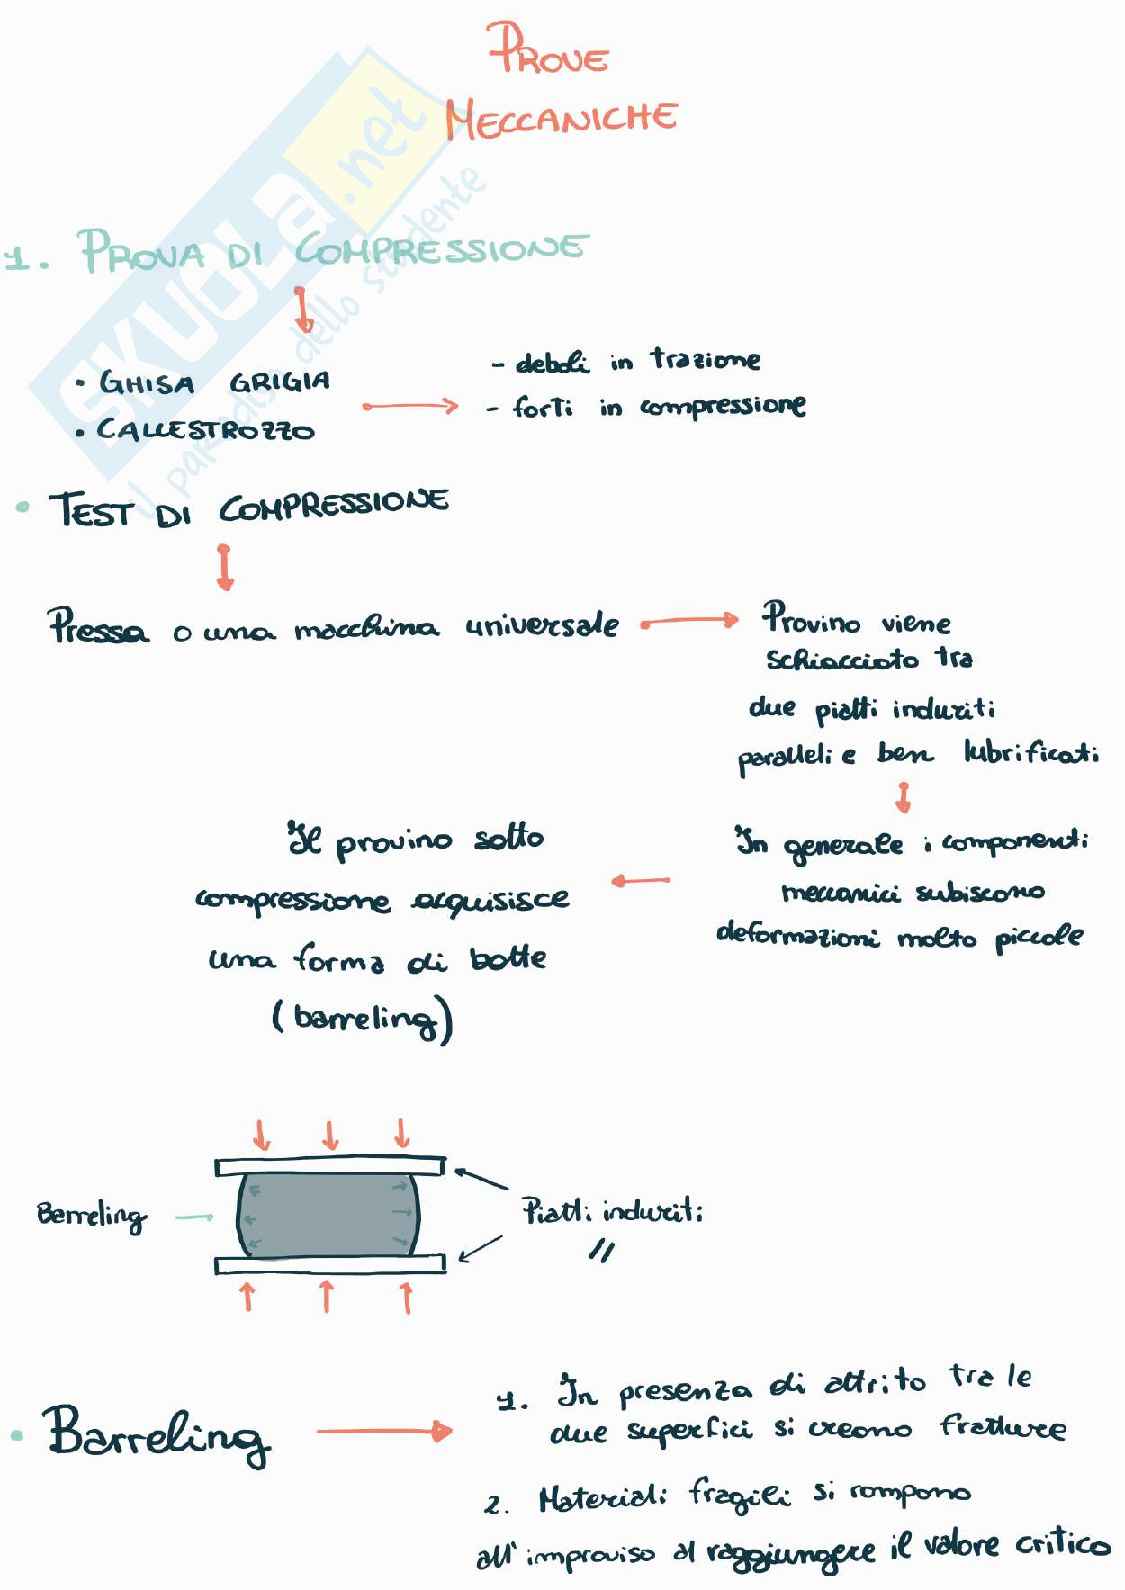 PROVE
MECCANICHE
1. PROVA DI COMPRESSIONE
• GHISA GRIGIA
• CALCESTROZZO
- deboli in trazione
- forti in compressione
• TEST DI COMPRESSIONE
Pressa o una macchina universale
Provino viene
schiacciato tra
due piatti induriti
paralleli e ben lubrificati
In generale i componenti
meccanici subiscono
deformazioni molto piccole
Il provino sotto
compressione acquisisce
una forma di botte
(barreling)
Barreling
Piatti induriti
//
• Barreling
1. In presenza di attrito tra le
due superfici si creano fratture
2. Materiali fragili si rompono
all'improvviso al raggiungere il valore critico
SKUOLA.net
il paradiso dello studente